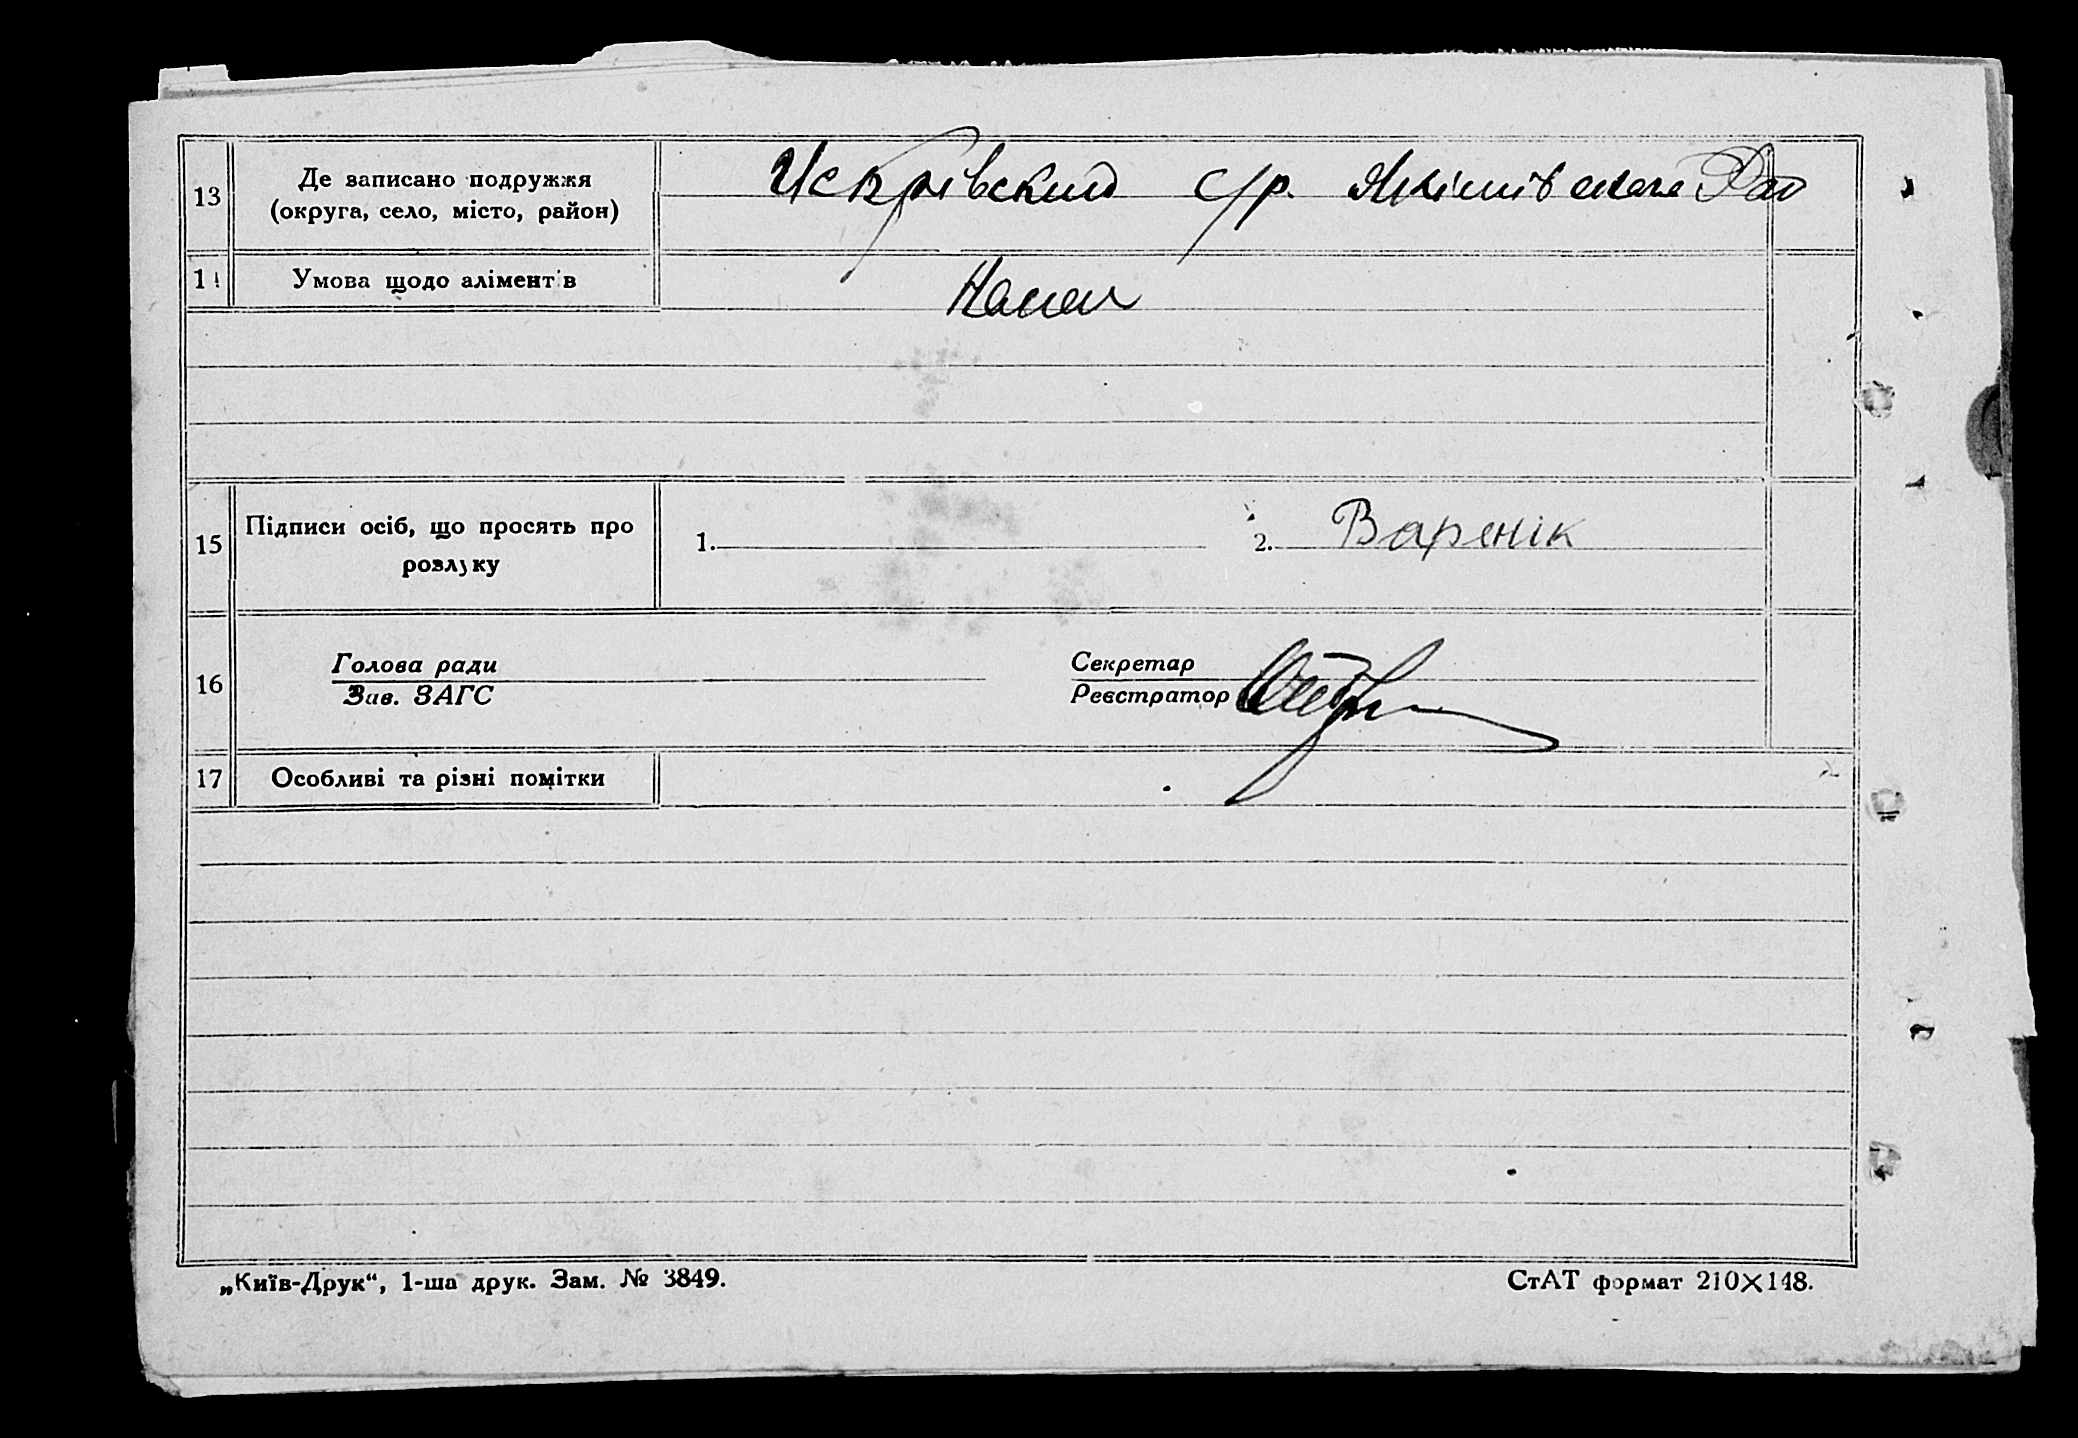 13 Де записано подружжя Искрівский с/р. Якимівскага Рай
(округа, село, місто, район)
14 Умова щодо аліментів
15 Підписи осіб, що просять про розлуку 1. 2. Варенік
16 Голова ради Секретар
Зав. ЗАГС Реєстратор
17 Особливі та різні помітки
„Київ-Друк“, 1-ша друк. Зам. № 3849. СтАТ формат 210×148.